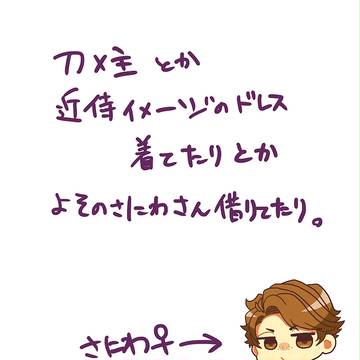 刀×主 とか
近侍イメージのドレス
着てたりとか
よそのさにわさん借りてたり。
さにわ♀→